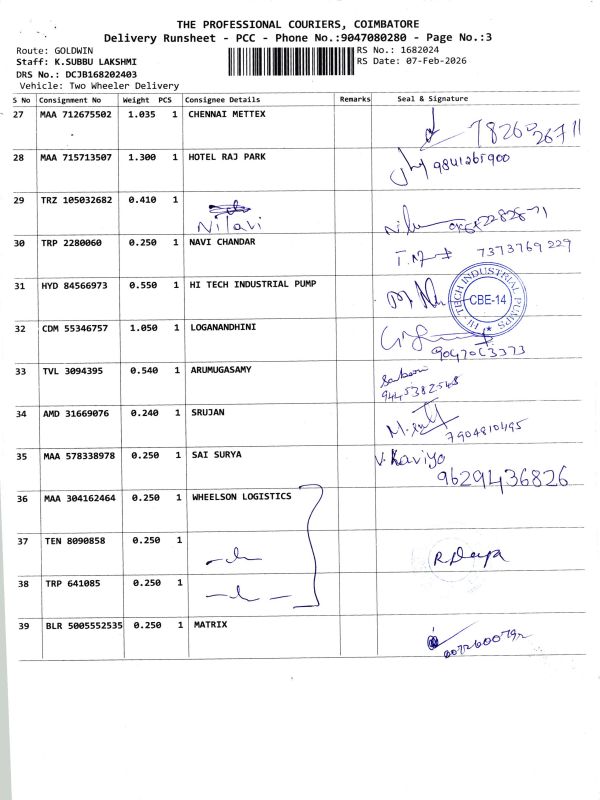 THE PROFESSIONAL COURIERS, COIMBATORE
Delivery Runsheet - PCC - Phone No.:9047080280 - Page No.:3
Route: GOLDWIN
RS No.: 1682024
Staff: K.SUBBU LAKSHMI
RS Date: 07-Feb-2026
DRS No.: DCJB168202403
Vehicle: Two Wheeler Delivery
S No Consignment No Weight PCS Consignee Details Remarks Seal & Signature
27 MAA 712675502 1.035 1 CHENNAI METTEX
28 MAA 715713507 1.300 1 HOTEL RAJ PARK 9841265900
29 TRZ 105032682 0.410 1 Nilavi
30 TRP 2280060 0.250 1 NAVI CHANDAR 7373769229
31 HYD 84566973 0.550 1 HI TECH INDUSTRIAL PUMP
HI-TECH INDUSTRIAL PUMPS CBE-14
32 CDM 55346757 1.050 1 LOGANANDHINI
33 TVL 3094395 0.540 1 ARUMUGASAMY
9445382548
34 AMD 31669076 0.240 1 SRUJAN 7904810495
35 MAA 578338978 0.250 1 SAI SURYA V. Kaviya
9629436826
36 MAA 304162464 0.250 1 WHEELSON LOGISTICS
37 TEN 8090858 0.250 1
38 TRP 641085 0.250 1
39 BLR 5005552535 0.250 1 MATRIX